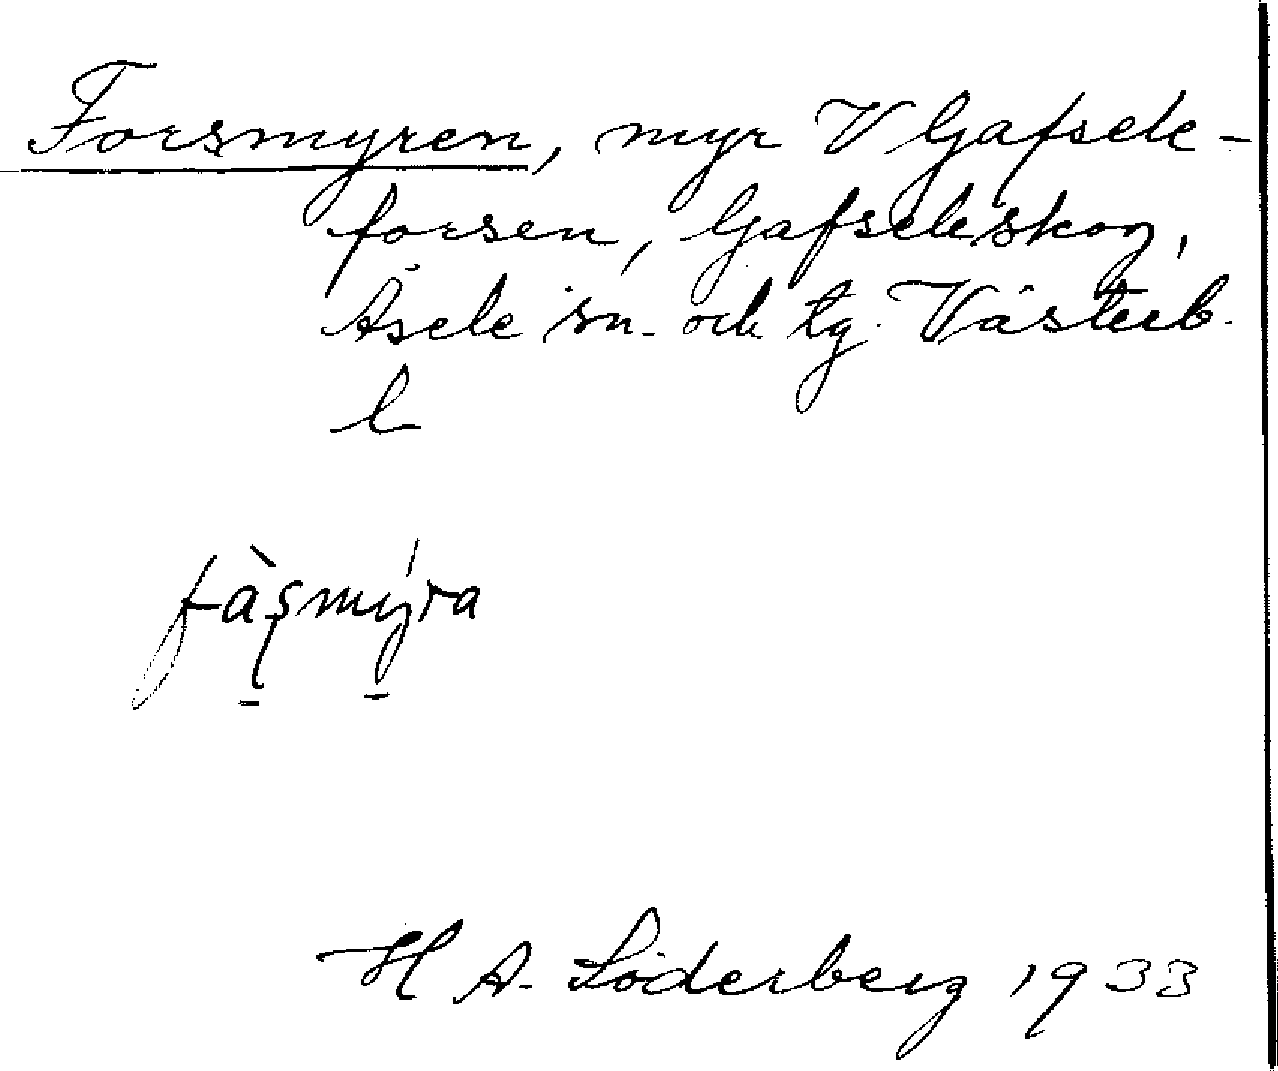 Forsmyren, myr V Gafsele-
forsen, Gafseleskog,
Åsele sn. och tg. Västerb.
l
fàșmýra
H A. Söderberg 1933